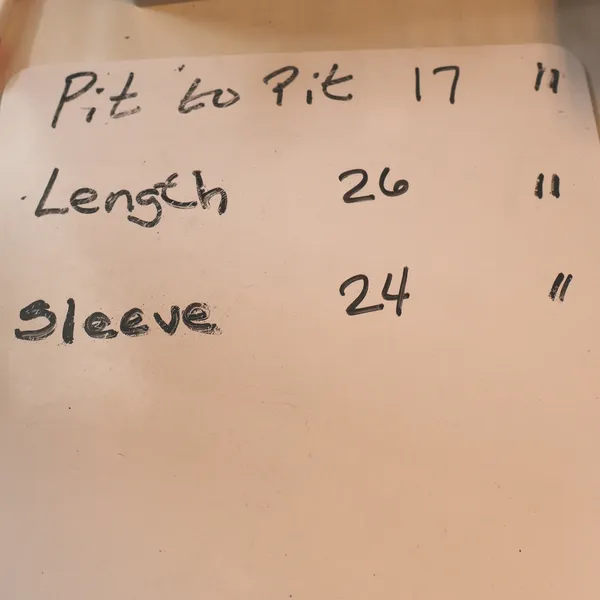 Pit to Pit 17 "
Length 26 "
Sleeve 24 "